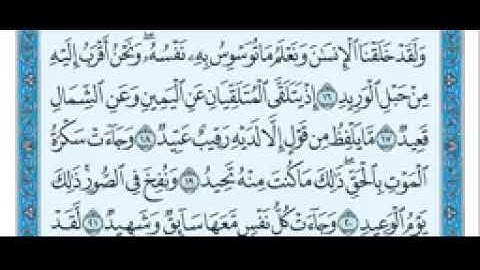 وَلَقَدْ خَلَقْنَا ٱلْإِنسَٰنَ وَنَعْلَمُ مَا تُوَسْوِسُ بِهِۦ نَفْسُهُۥ ۖ وَنَحْنُ أَقْرَبُ إِلَيْهِ
مِنْ حَبْلِ ٱلْوَرِيدِ ١٦ إِذْ يَتَلَقَّى ٱلْمُتَلَقِّيَانِ عَنِ ٱلْيَمِينِ وَعَنِ ٱلشِّمَالِ
قَعِيدٌ ١٧ مَّا يَلْفِظُ مِن قَوْلٍ إِلَّا لَدَيْهِ رَقِيبٌ عَتِيدٌ ١٨ وَجَآءَتْ سَكْرَةُ
ٱلْمَوْتِ بِٱلْحَقِّ ۖ ذَٰلِكَ مَا كُنتَ مِنْهُ تَحِيدُ ١٩ وَنُفِخَ فِى ٱلصُّورِ ۚ ذَٰلِكَ
يَوْمُ ٱلْوَعِيدِ ٢٠ وَجَآءَتْ كُلُّ نَفْسٍ مَّعَهَا سَآئِقٌ وَشَهِيدٌ ٢١ لَّقَدْ